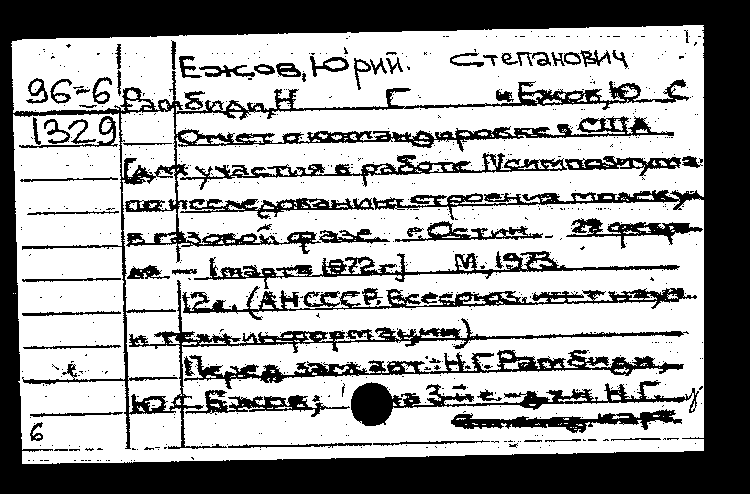 Ежов, Юрий Степанович
96-6 Рамбиди, Н Г и Ежов, Ю С
1329 Отчет о командировке в США
[для участия в работе IV симпозиума
по исследованию строения молеку
в газовой фазе г. Остин. 28 февра-
ля — 1 марта 1972 г.] М., 1973.
12 с. (АН СССР. Всесоюз. ин-т науч.
и техн. информации)
Перед загл. авт.: Н. Г. Рамбиди,
Ю. С. Ежов; на 3-й с. - д.х.н. Н. Г.
См. след. карт.
6